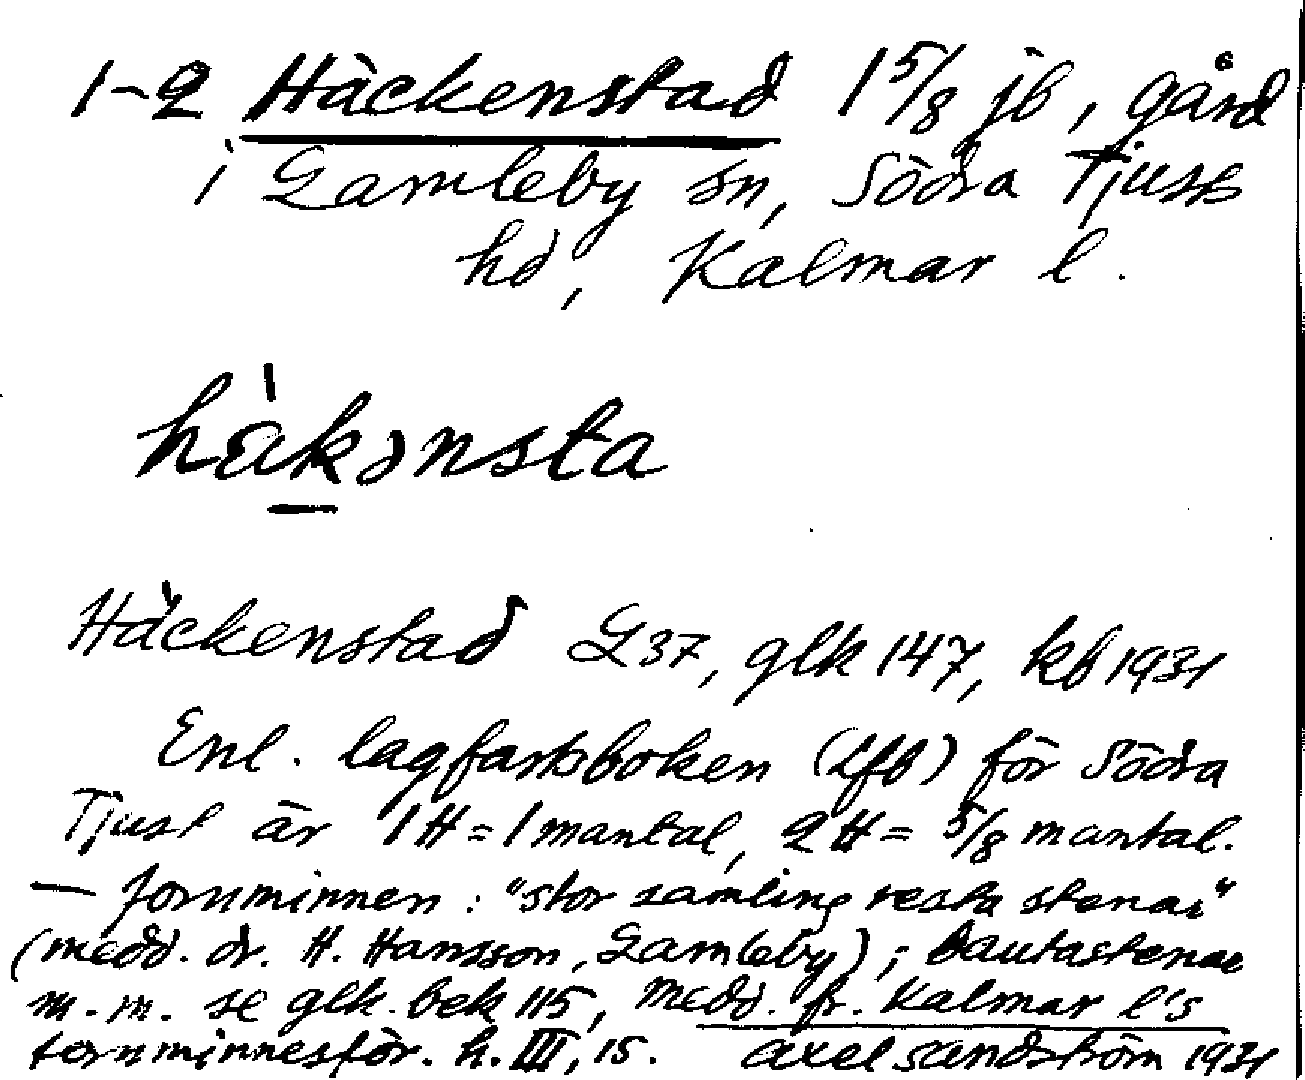 1-2 Häckenstad 1 5/8 jb, gård
i Gamleby sn, Södra Tjusts
hd, Kalmar l.
hàkənsta
Häckenstad G37, glk 147, kb 1931
Enl. lagfartsboken (Lfb) för Södra
Tjust är 1 H = 1 mantal, 2 H = 5/8 mantal.
— fornminnen : "stor samling resta stenar"
(medd. dr. H. Hansson, Gamleby); bautastenar
m.m. se glk. bek 115, medd. fr. Kalmar l's
fornminnesför. h. III, 15. Axel Sandström 1931